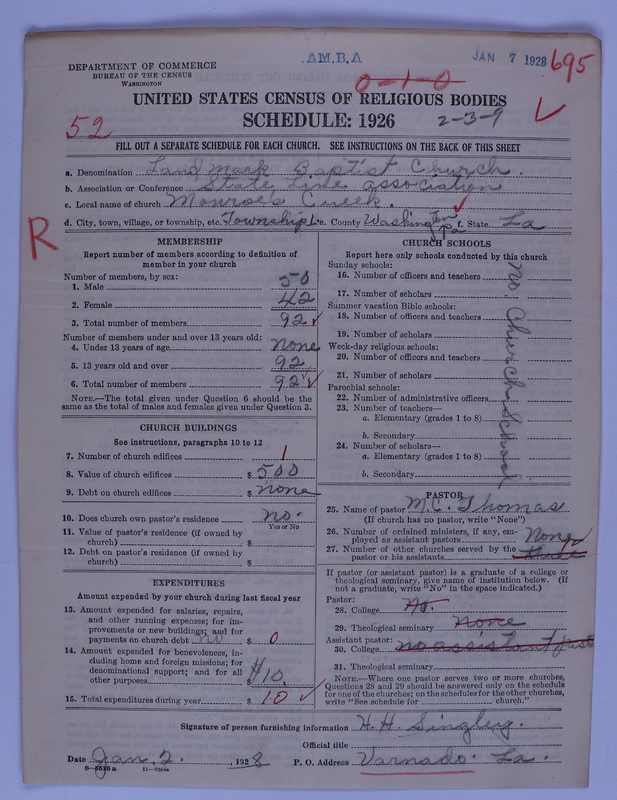 AM.B.A
JAN 7 1928 695
DEPARTMENT OF COMMERCE
BUREAU OF THE CENSUS
WASHINGTON
0-1-0
UNITED STATES CENSUS OF RELIGIOUS BODIES
52 SCHEDULE: 1926 2-3-9
FILL OUT A SEPARATE SCHEDULE FOR EACH CHURCH. SEE INSTRUCTIONS ON THE BACK OF THIS SHEET
a. Denomination Land Mark Baptist Church.
b. Association or Conference State Line association
c. Local name of church Monroe's Creek.
d. City, town, village, or township, etc. Township 1 e. County Washington Pa f. State La
R
MEMBERSHIP
Report number of members according to definition of
member in your church
Number of members, by sex:
1. Male 50
2. Female 42
3. Total number of members 92
Number of members under and over 13 years old:
4. Under 13 years of age None
5. 13 years old and over 92
6. Total number of members 92
NOTE.—The total given under Question 6 should be the
same as the total of males and females given under Question 3.
CHURCH BUILDINGS
See instructions, paragraphs 10 to 12
7. Number of church edifices 1
8. Value of church edifices $ 500
9. Debt on church edifices $ none
10. Does church own pastor's residence no.
Yes or No
11. Value of pastor's residence (if owned by
church) $
12. Debt on pastor's residence (if owned by
church) $
EXPENDITURES
Amount expended by your church during last fiscal year
13. Amount expended for salaries, repairs,
and other running expenses; for im-
provements or new buildings; and for
payments on church debt no $ 0
14. Amount expended for benevolences, in-
cluding home and foreign missions; for
denominational support; and for all
other purposes $10.
15. Total expenditures during year $ 10
CHURCH SCHOOLS
Report here only schools conducted by this church
Sunday schools:
16. Number of officers and teachers
17. Number of scholars
Summer vacation Bible schools:
18. Number of officers and teachers
19. Number of scholars
Week-day religious schools:
20. Number of officers and teachers
21. Number of scholars
Parochial schools:
22. Number of administrative officers
23. Number of teachers—
a. Elementary (grades 1 to 8)
b. Secondary
24. Number of scholars—
a. Elementary (grades 1 to 8)
b. Secondary
no Church School
PASTOR
25. Name of pastor M.C. Thomas
(If church has no pastor, write "None")
26. Number of ordained ministers, if any, em-
ployed as assistant pastors None
27. Number of other churches served by the
pastor or his assistants three
If pastor (or assistant pastor) is a graduate of a college or
theological seminary, give name of institution below. (If
not a graduate, write "No" in the space indicated.)
Pastor:
28. College No.
29. Theological seminary None
Assistant pastor:
30. College no assistant past
31. Theological seminary
NOTE.—Where one pastor serves two or more churches,
Questions 28 and 29 should be answered only on the schedule
for one of the churches; on the schedules for the other churches,
write "See schedule for church."
Signature of person furnishing information H. H. Singley.
Official title
Date Jan. 2. , 1928 P. O. Address Varnado. La.
8-5518a 11-0514a